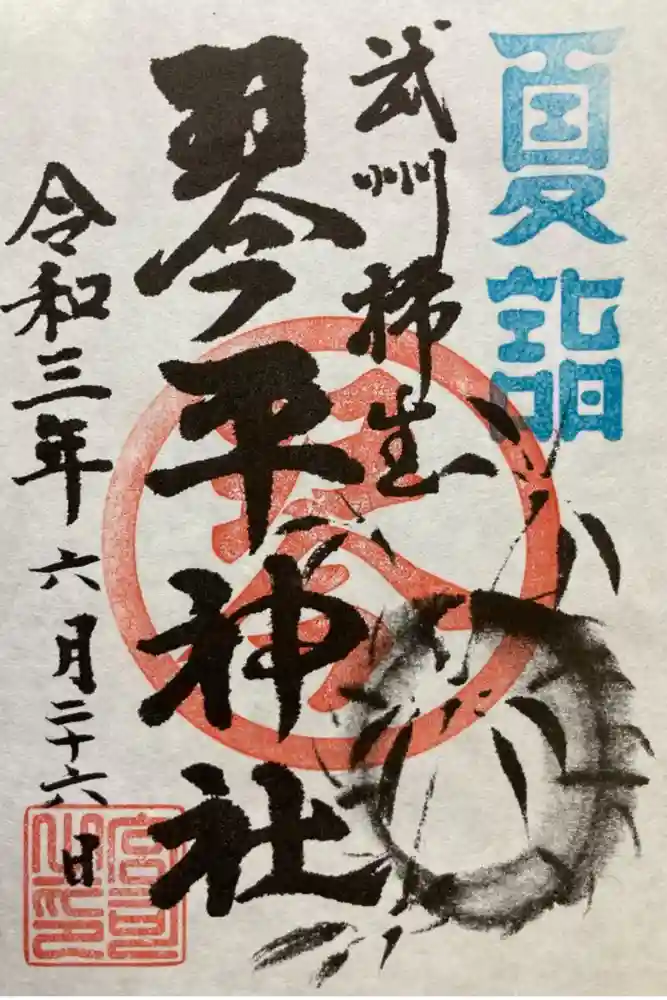 夏詣
武州柿生
琴平神社
令和三年六月二十六日
琴
宮司之印